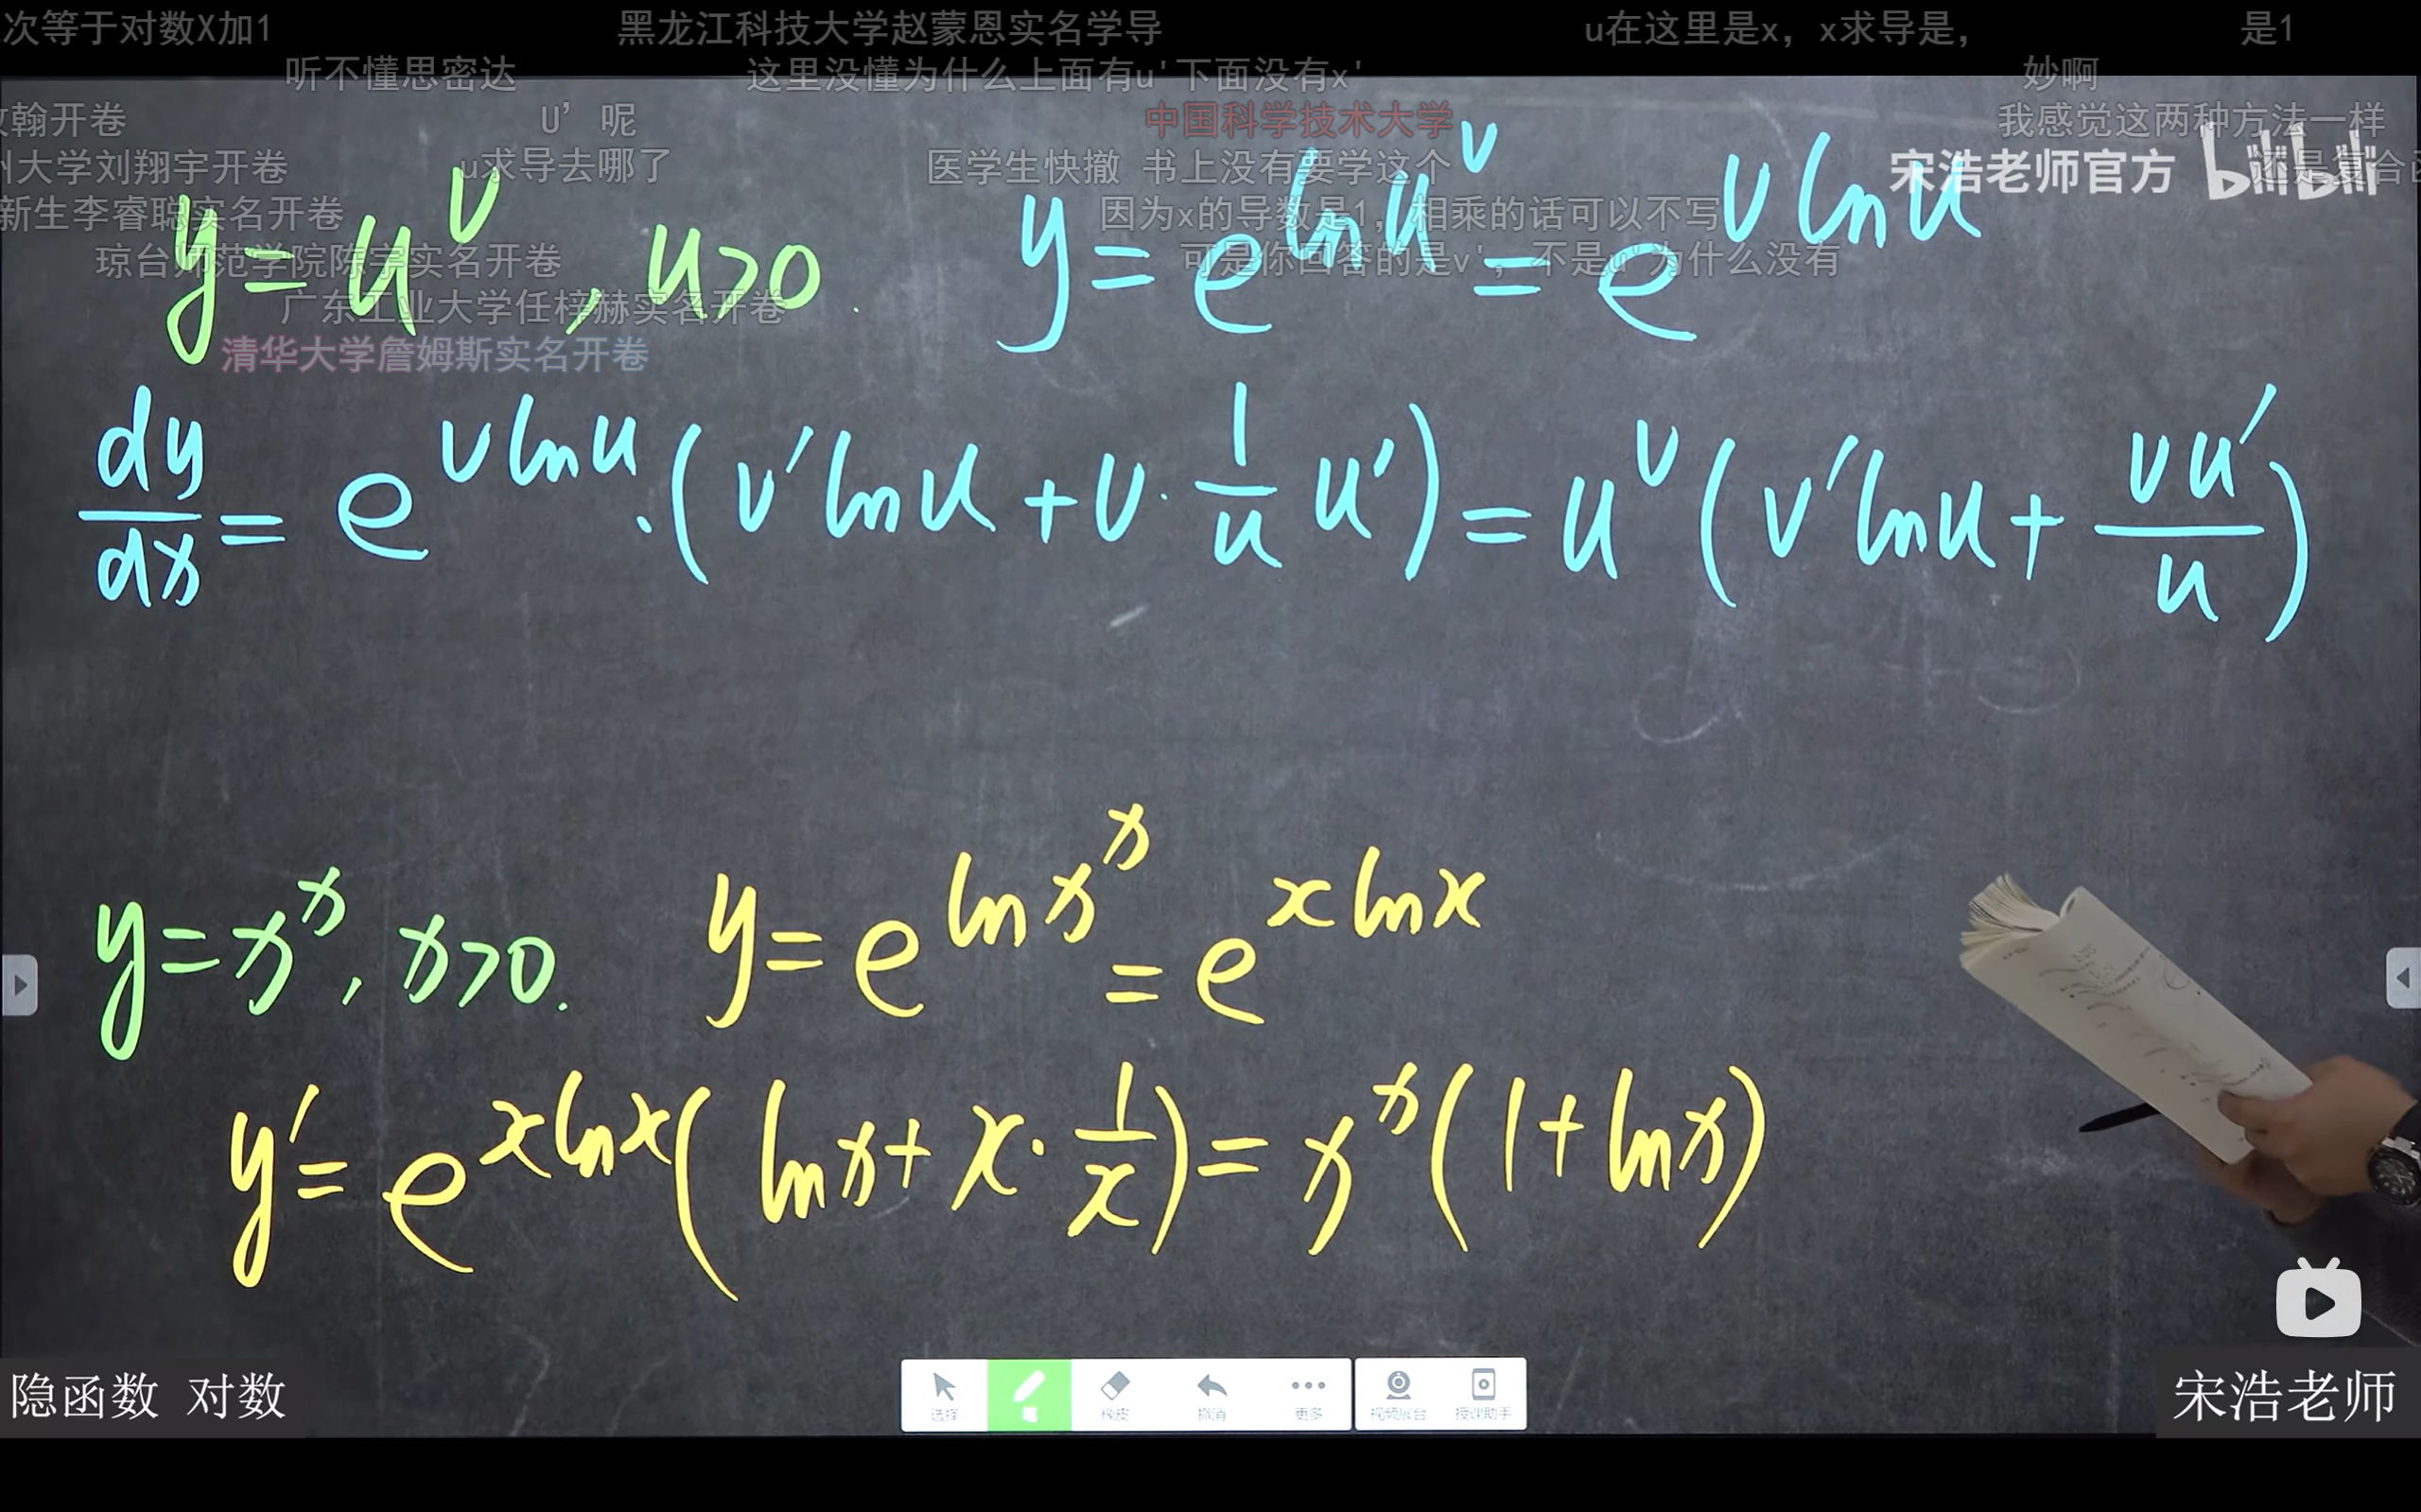 次等于对数X加1 黑龙江科技大学赵蒙恩实名学导 u在这里是x，x求导是， 是1
听不懂思密达 这里没懂为什么上面有u'下面没有x' 妙啊
翰开卷 U’ 呢 中国科学技术大学 我感觉这两种方法一样
大学刘翔宇开卷 u求导去哪了 医学生快撤 书上没有要学这个 宋浩老师官方 bilibili 还是复合
新生李睿聪实名开卷 因为x的导数是1，相乘的话可以不写
琼台师范学院陈宇实名开卷 可是你回答的是v'，不是u'为什么没有
广东工业大学任梓赫实名开卷
清华大学詹姆斯实名开卷
y=u^v, u>0. y=e^{ln u^v}=e^{v ln u}
dy/dx=e^{v ln u}·(v' ln u+v·1/u u')=u^v(v' ln u+vu'/u)
y=x^x, x>0. y=e^{ln x^x}=e^{x ln x}
y'=e^{x ln x}(ln x+x·1/x)=x^x(1+ln x)
隐函数 对数
选择 笔 橡皮 撤消 更多 视频展台 授课助手
宋浩老师